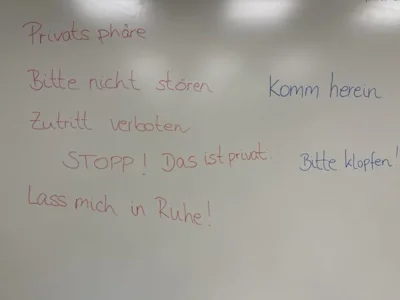 Privatsphäre
Bitte nicht stören
Komm herein
Zutritt verboten
STOPP! Das ist privat.
Bitte klopfen!
Lass mich in Ruhe!